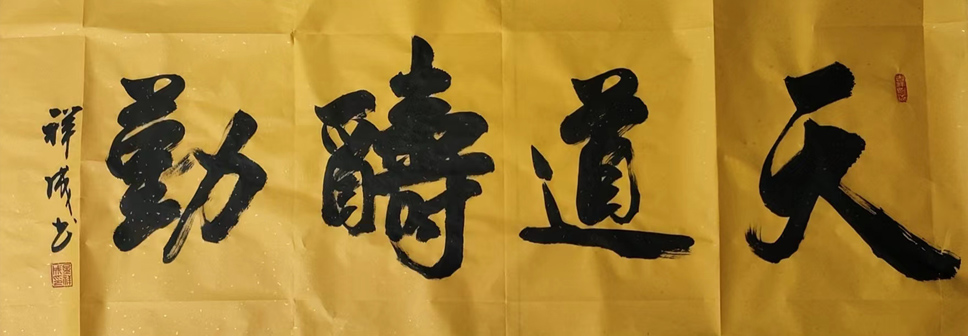 天道酬勤
祥成书